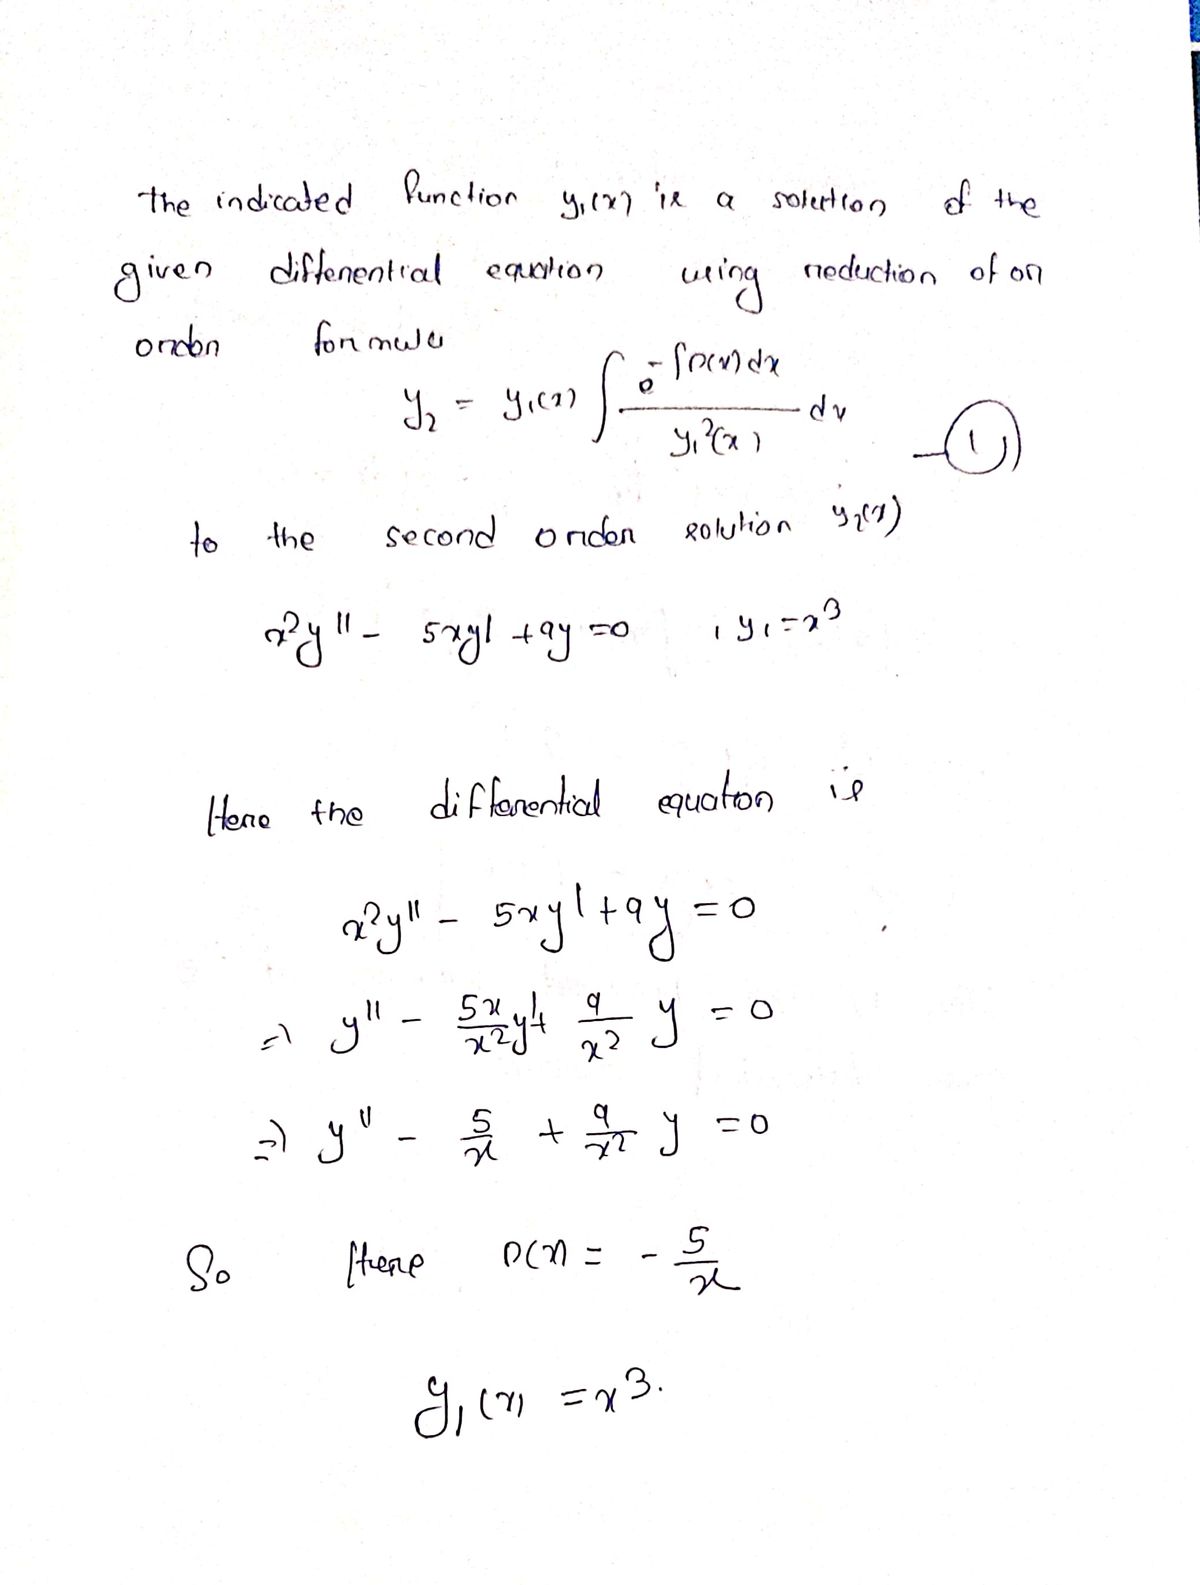 the indicated function y₁(x) is a solution of the
given differential equation using reduction of on
order formula
y₂ = y₁(x) ∫ e^(-∫p(x)dx) / y₁²(x) dx —①
to the second order solution y₂(x)
x²y'' - 5xy' + 9y = 0 , y₁ = x³
Here the differential equation is
x²y'' - 5xy' + 9y = 0
⇒ y'' - 5x/x² y' + 9/x² y = 0
⇒ y'' - 5/x + 9/x² y = 0
So Here p(x) = - 5/x
y₁(x) = x³.